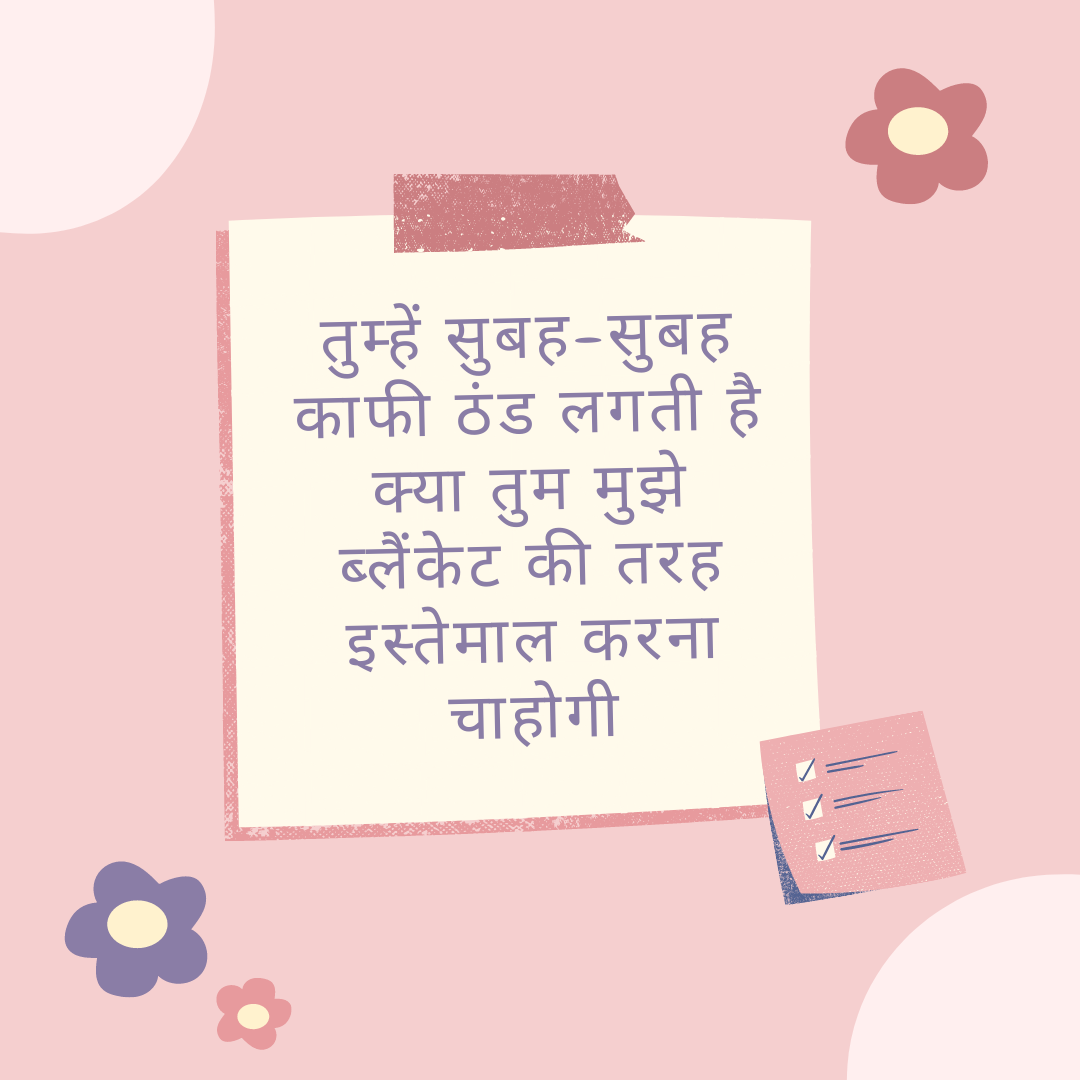 तुम्हें सुबह-सुबह
काफी ठंड लगती है
क्या तुम मुझे
ब्लैंकेट की तरह
इस्तेमाल करना
चाहोगी